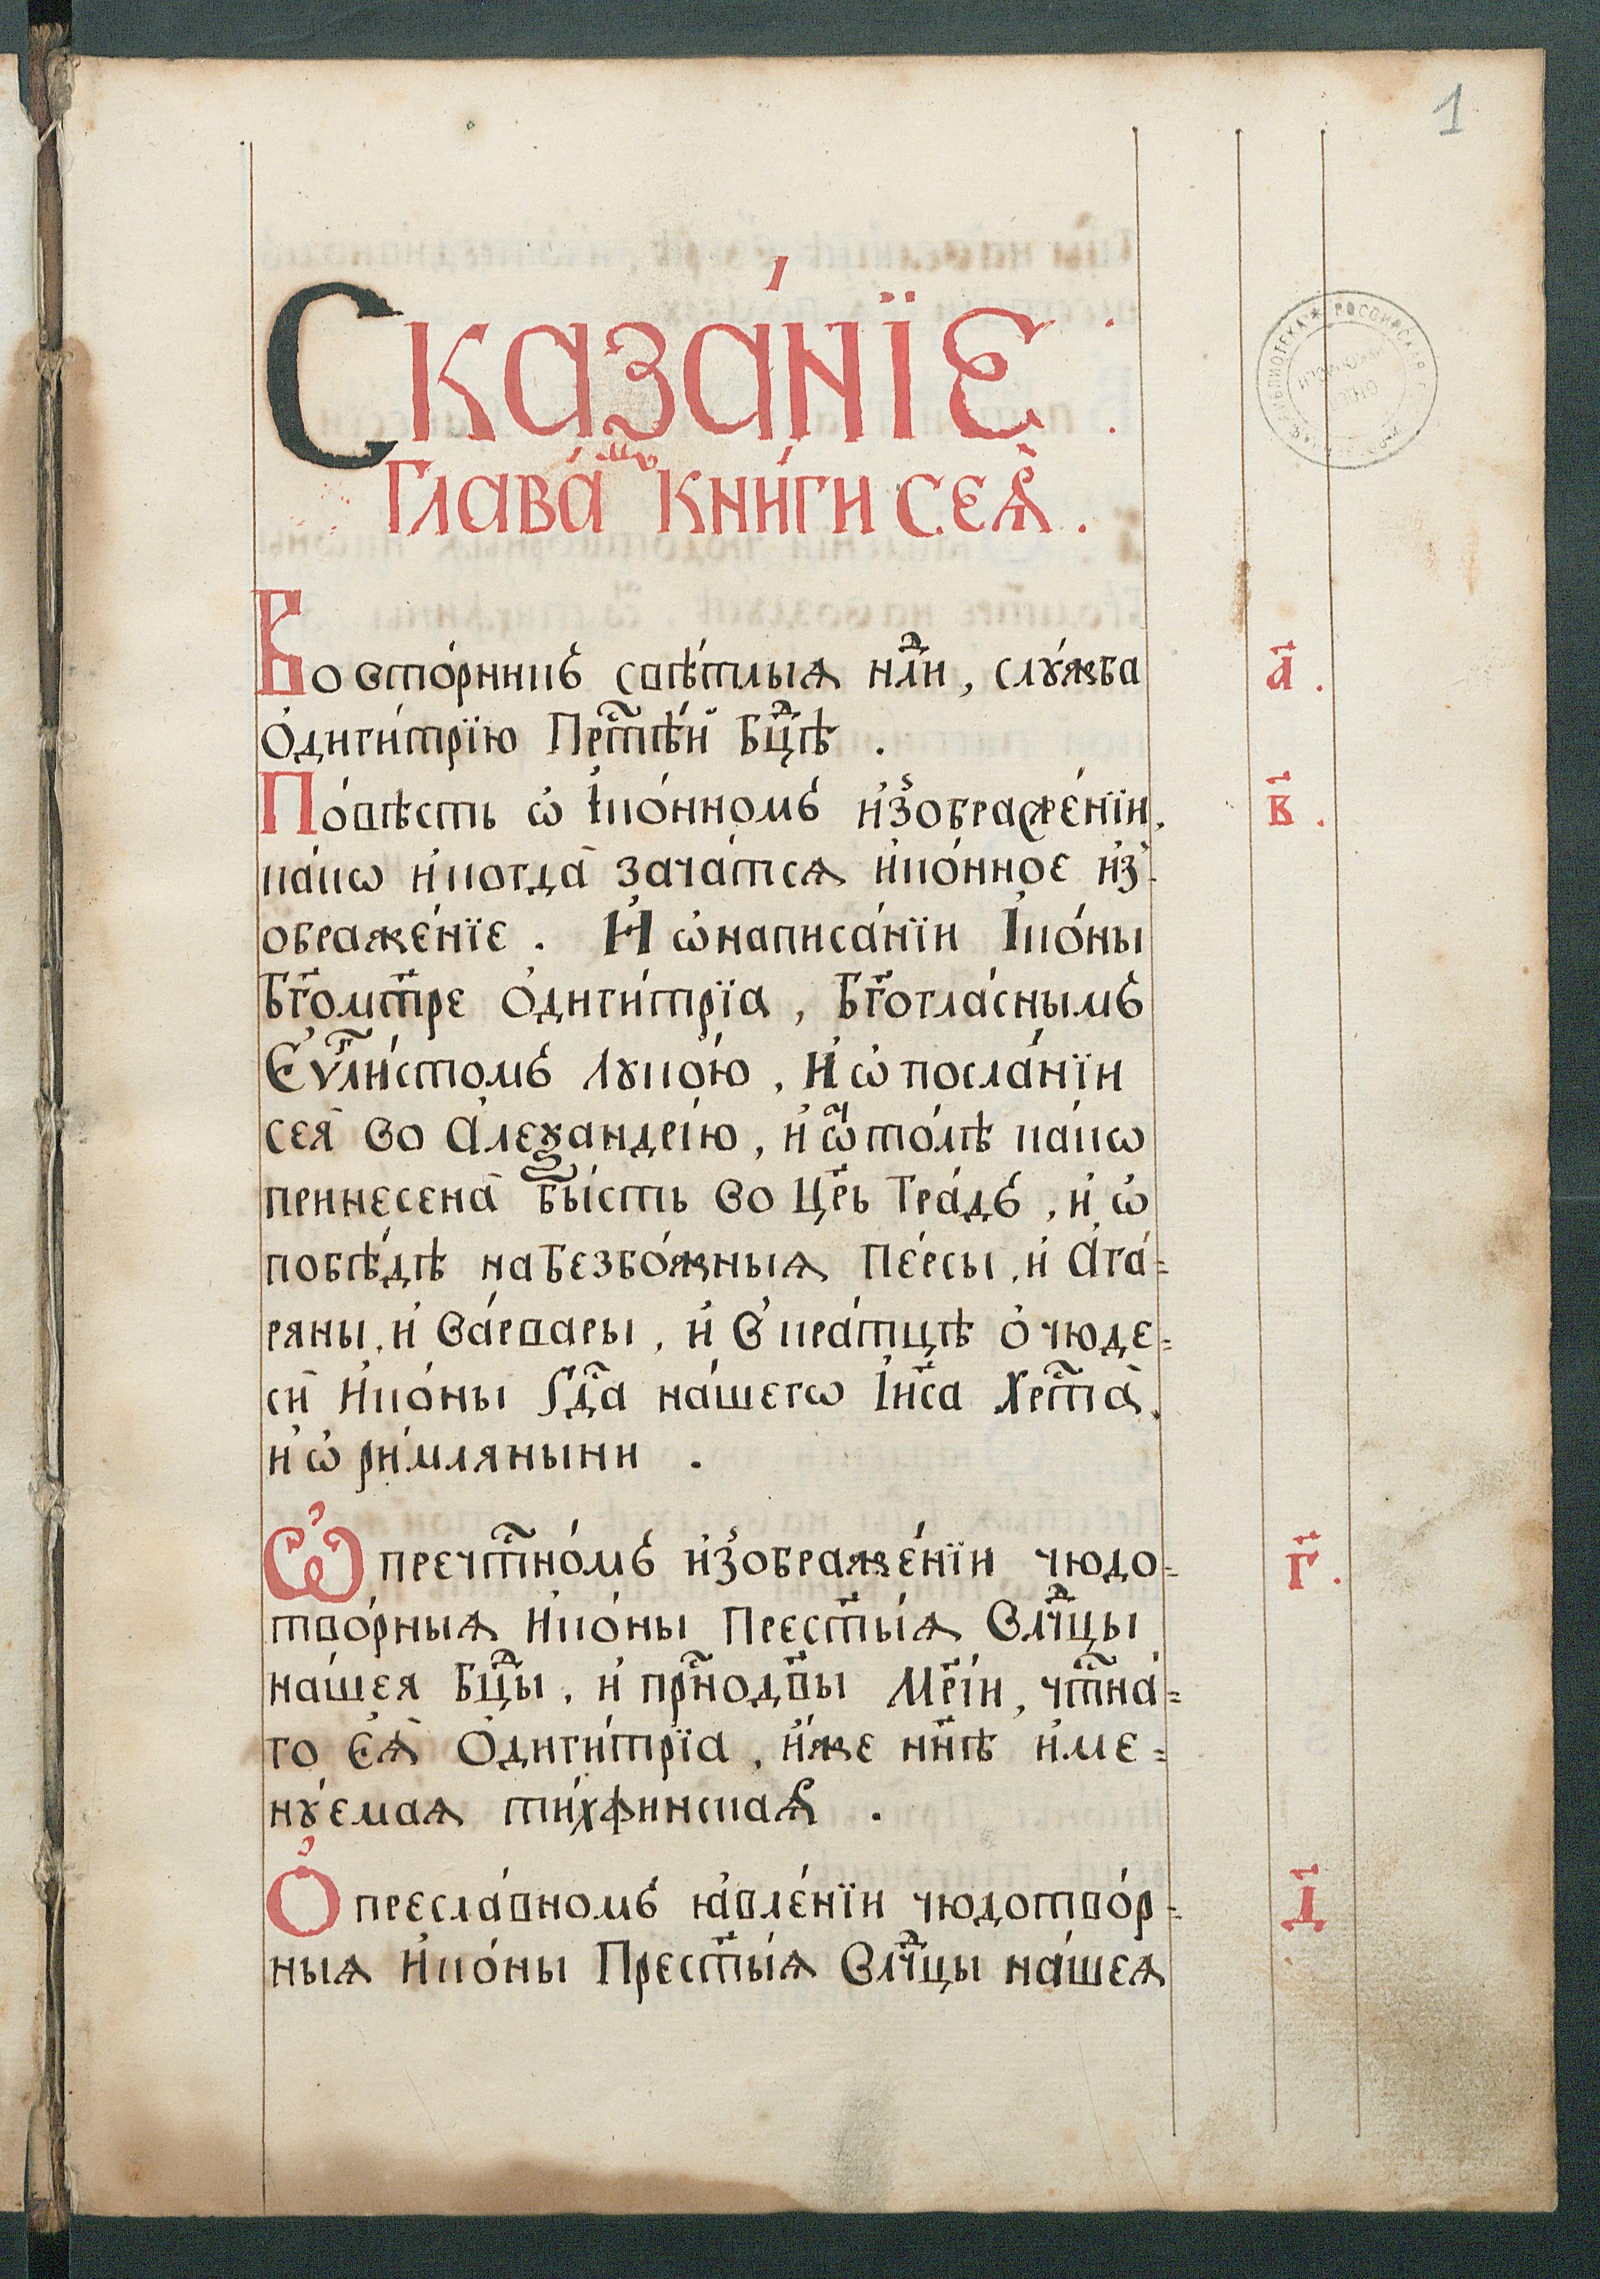 1
Сказа́нїе .
Глава́мъ кни́ги сея̀ .
Во вто́рникъ свѣ́тлыѧ н҃дли, слꙋ́жба а҃ .
Ѻдиги́трїю Прест҃ѣ́й Бц҃ѣ .
По́вѣсть ѡ҆ Іко́нномъ и҆зⸯображе́нїи, в҃ .
ка́кѡ и҆когда̀ зача́тсѧ и҆ко́нное и҆з-
ображе́нїе . И҆ ѡ҆ написа́нїи Іко́ны
Бг҃омт҃ре Ѻдиги́трїа, Бг҃огла́снымъ
Еѵ҃ли́стомъ Лꙋко́ю, И҆ ѡ҆ посла́нїи
сея̀ во Алеѯандрі́ю, и҆ ѿто́лѣ ка́кѡ
принесена̀ бы́сть во Цр҃ь Гра́дъ, и҆ ѡ҆
побѣ́дѣ на безбо́жныѧ Пе́рсы, и҆ Ага́-
ряны, и҆ Ва́рвары, и҆ в̾кра́тцѣ о҆ чюде-
сѝ И҆ко́ны Гд҃а на́шегѡ І҆и҃са Хрт҃а̀,
и҆ ѡ҆ ри́мляныни .
Ѡ҆ пречт҃но́мъ и҆зⸯображе́нїи чюдо- г҃ .
тво́рныѧ И҆ко́ны Прест҃ы́ѧ Влч҃цы
на́шея Бц҃ы, и҆ прн҃одв҃ы Мр҃і́и, чт҃на́-
го еѧ̀ Ѻдиги́трїа, и҆́же нн҃ѣ и҆ме-
нꙋ́емаѧ ти́хфинскаѧ .
Ѻ҆ пресла́вномъ ꙗ҆вле́нїи чюдотво́р- д҃
ныѧ И҆ко́ны Прест҃ы́ѧ Влч҃цы на́шеѧ